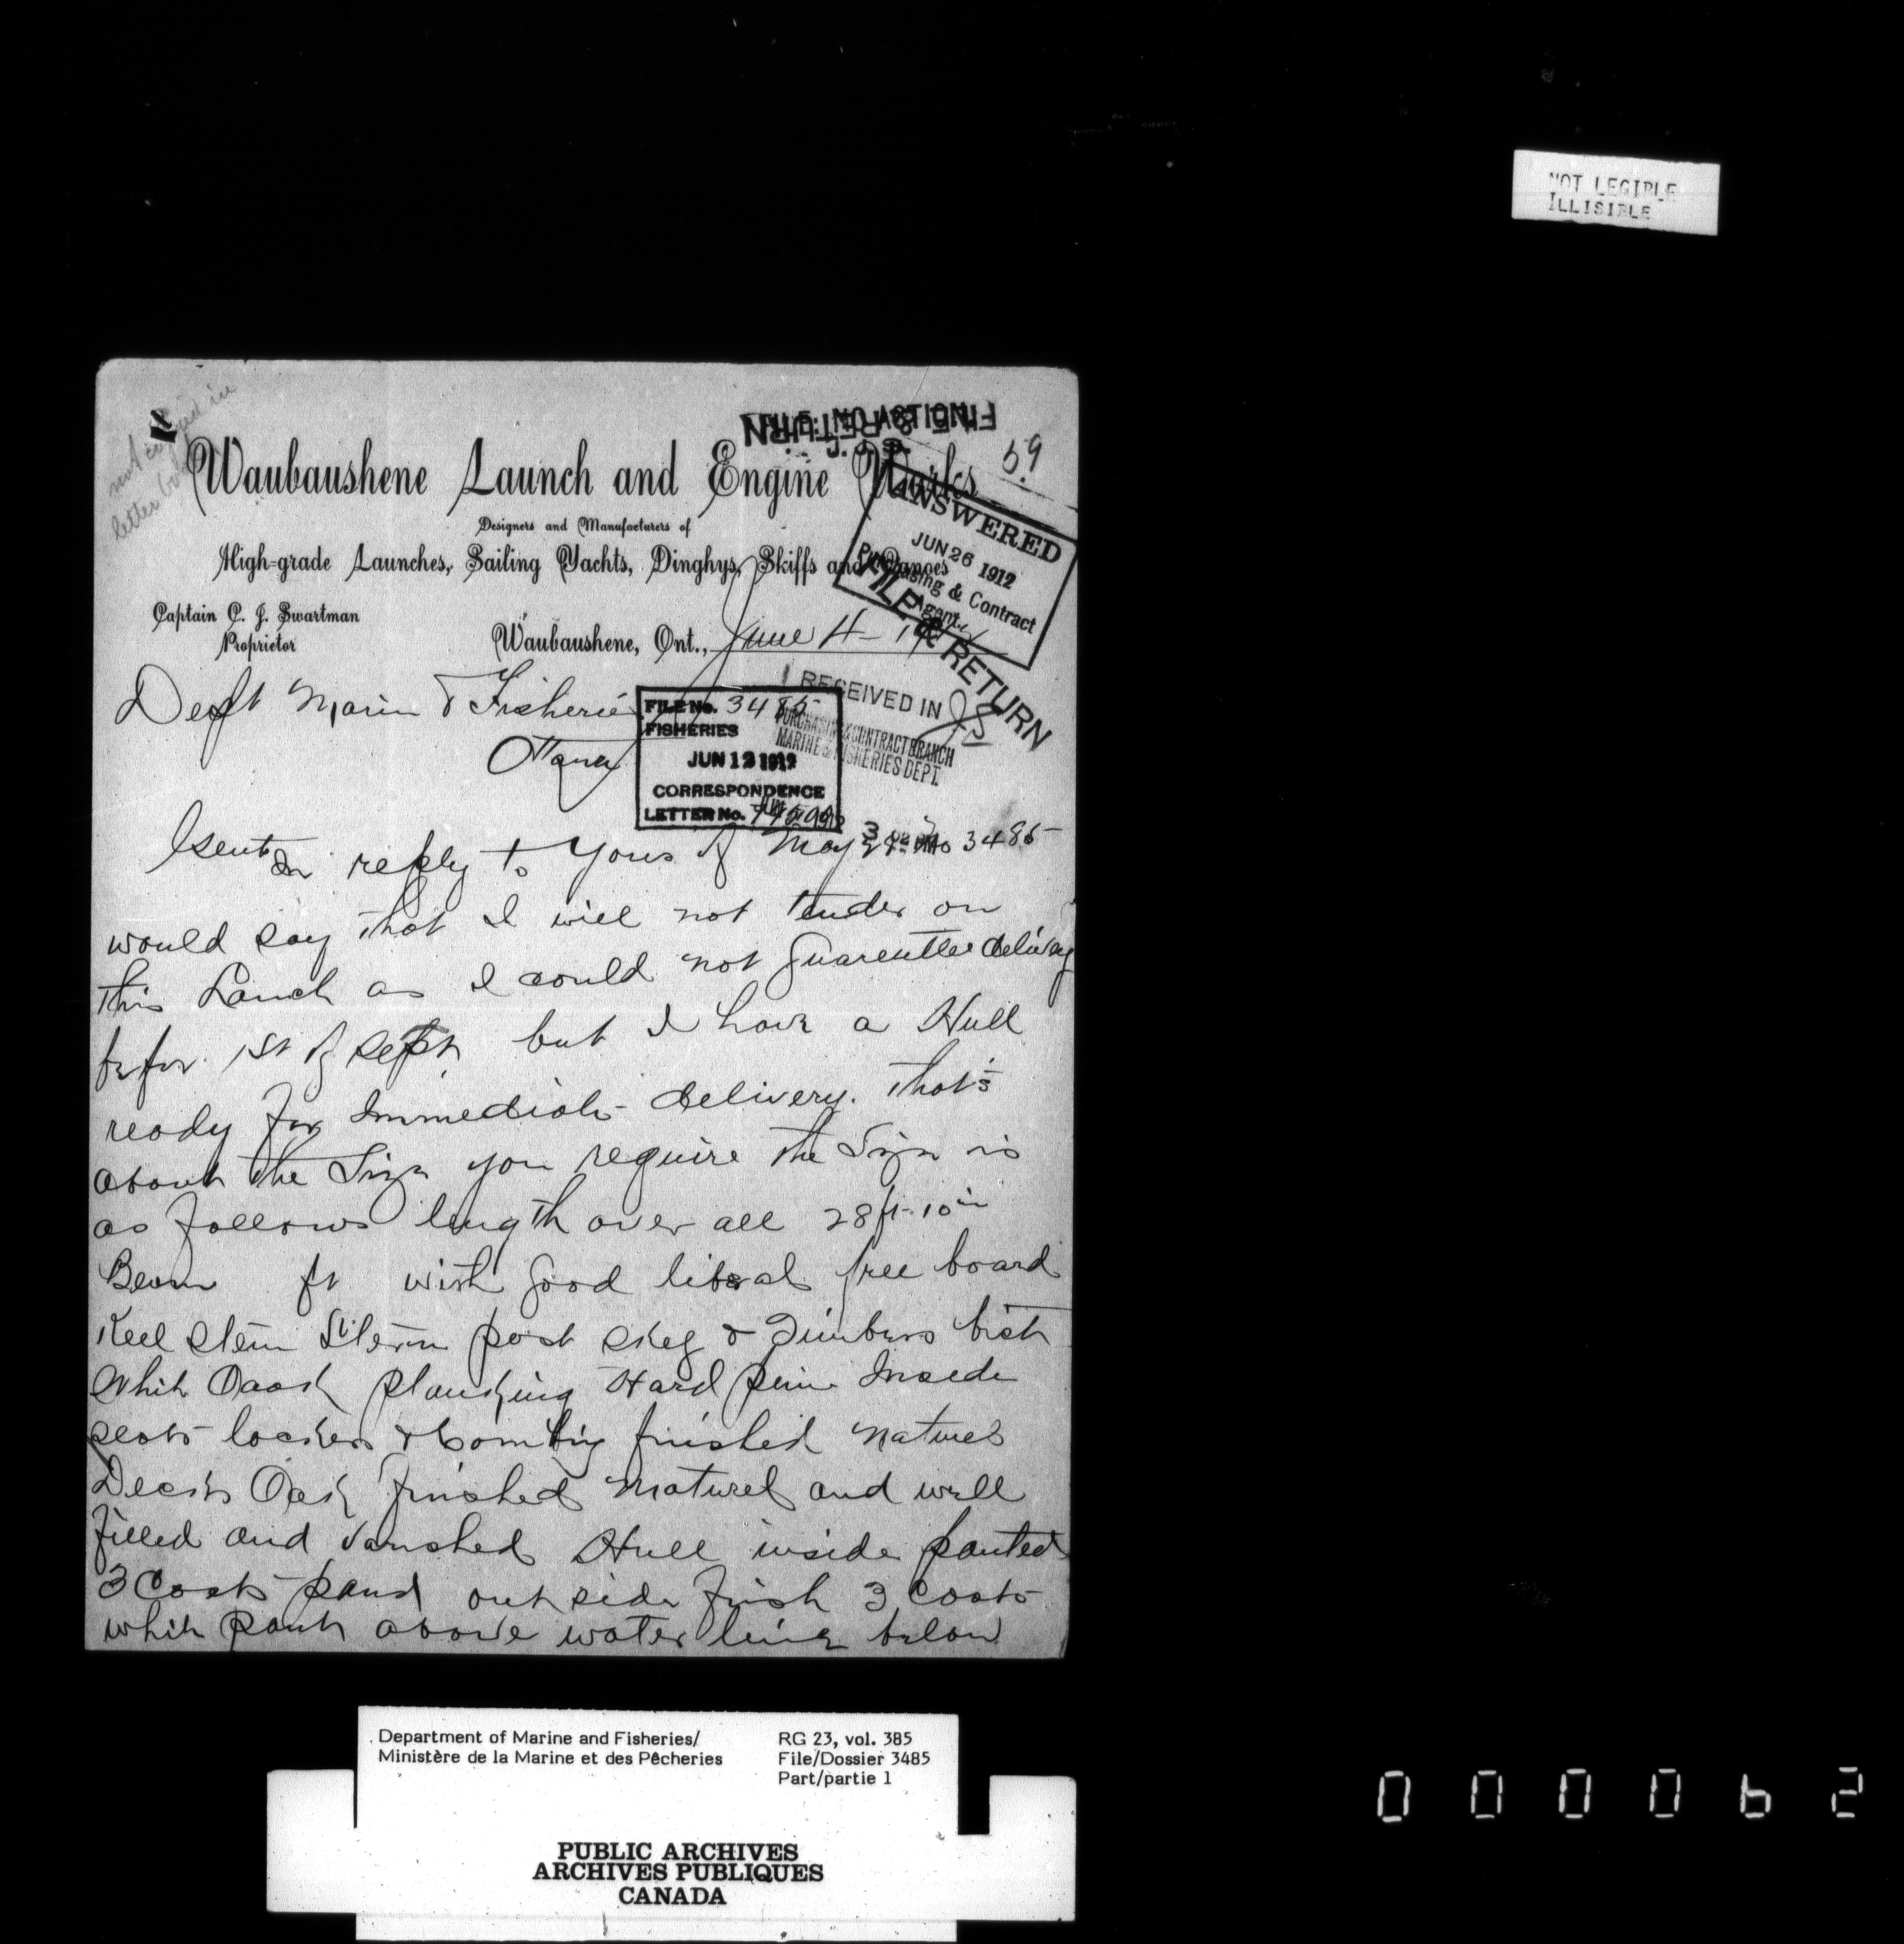 NOT LEGIBLE
ILLISIBLE
letter
59
Waubaushene Launch and Engine Works
Designers and Manufacturers of
High-grade Launches, Sailing Yachts, Dinghys, Skiffs and Canoes
ANSWERED
JUN 26 1912
Purchasing & Contract
Agent
FILE & RETURN
Captain C. J. Swartman
Proprietor
Waubaushene, Ont., June 4 - 19
Deqt Marin & Fisheries
Ottawa
FILE No. 3485
FISHERIES
JUN 12 1912
CORRESPONDENCE
LETTER No.
RECEIVED IN
PURCHASING & CONTRACT BRANCH
MARINE & FISHERIES DEPT.
Gent In reply to yours of May No 3485
would say that I will not tender on
this Lanch as I could not Guarenttee delivery
befor 1st of Sept but I have a Hull
ready for Immediate delivery. that's
about the Size you require the Size is
as follows length over all 28 ft-10 in
Beam ft with Good liberal free board
Keel stem Stern post skeg & Timbers best
White Oaak planking Hard pine Inside
seats lockers & Combing finished naturel
Decks Oak finished naturel and well
filled and varnshed Hull inside panted
3 Coats pant outside finsh 3 Coats
white pant above water line below
Department of Marine and Fisheries/
Ministère de la Marine et des Pêcheries
RG 23, vol. 385
File/Dossier 3485
Part/partie 1
PUBLIC ARCHIVES
ARCHIVES PUBLIQUES
CANADA
000062